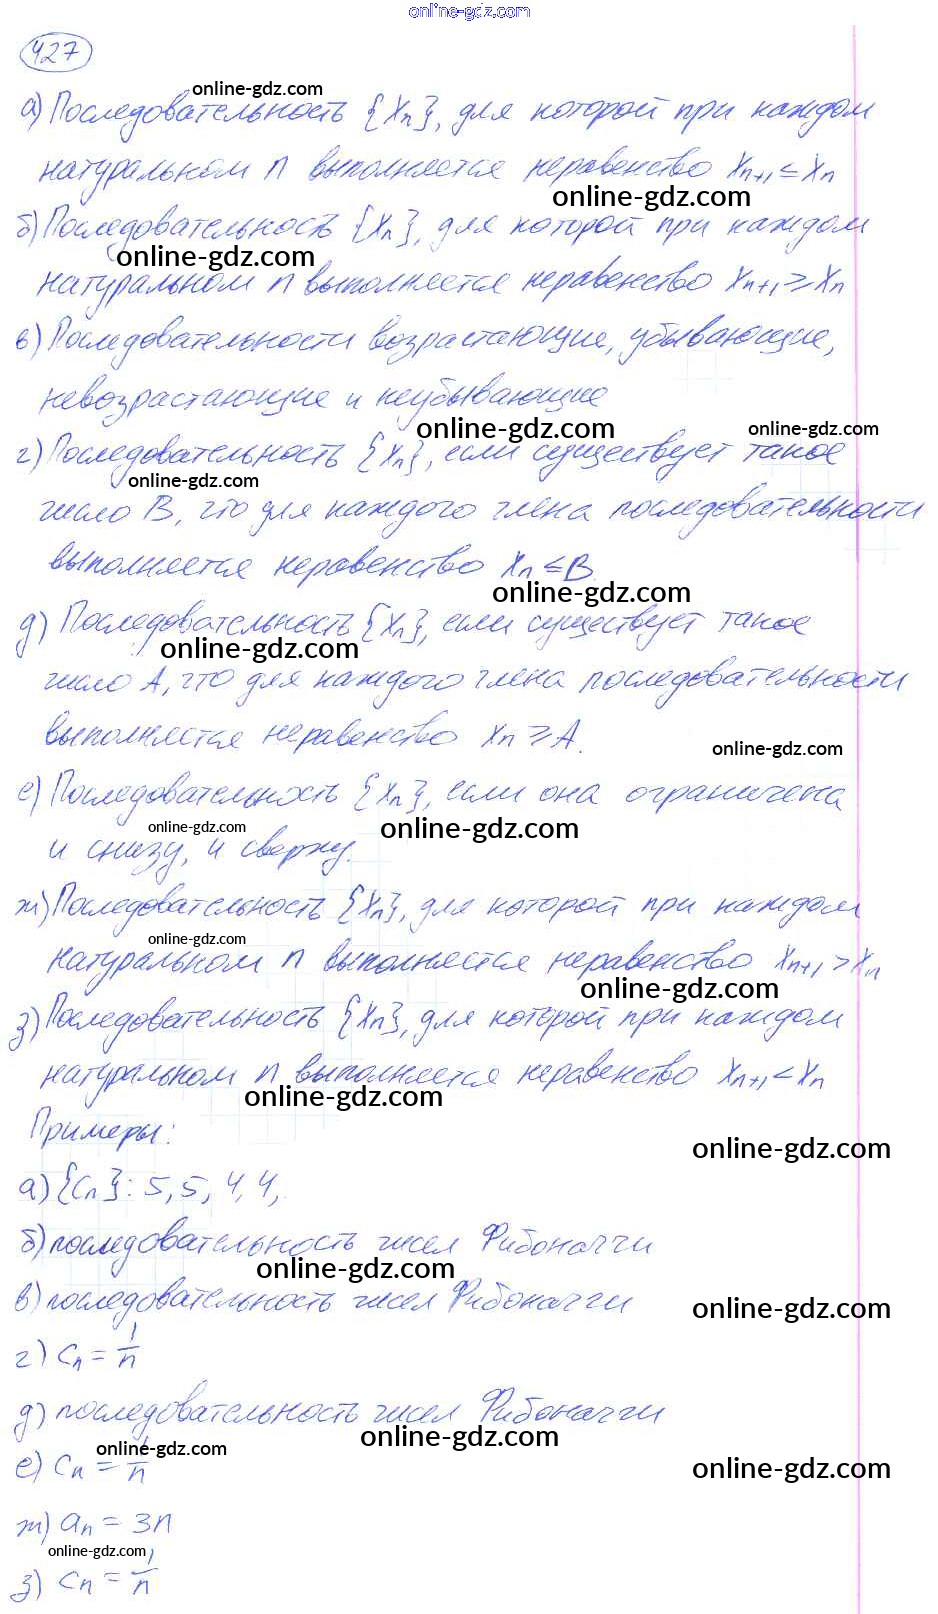 online-gdz.com
427
online-gdz.com
а) Последовательность {xₙ}, для которой при каждом
натуральном n выполняется неравенство xₙ₊₁ ≤ xₙ
online-gdz.com
б) Последовательность {xₙ}, для которой при каждом
online-gdz.com
натуральном n выполняется неравенство xₙ₊₁ ≥ xₙ
в) Последовательности возрастающие, убывающие,
невозрастающие и неубывающие
online-gdz.com online-gdz.com
г) Последовательность {xₙ}, если существует такое
online-gdz.com
число B, что для каждого члена последовательности
выполняется неравенство xₙ ≤ B.
online-gdz.com
д) Последовательность {xₙ}, если существует такое
online-gdz.com
число A, что для каждого члена последовательности
выполняется неравенство xₙ ≥ A.
online-gdz.com
е) Последовательность {xₙ}, если она ограничена
online-gdz.com online-gdz.com
и снизу, и сверху.
ж) Последовательность {xₙ}, для которой при каждом
online-gdz.com
натуральном n выполняется неравенство xₙ₊₁ > xₙ
online-gdz.com
з) Последовательность {xₙ}, для которой при каждом
натуральном n выполняется неравенство xₙ₊₁ < xₙ
online-gdz.com
Примеры:
online-gdz.com
а) {cₙ}: 5, 5, 4, 4,
б) последовательность чисел Фибоначчи
online-gdz.com
в) последовательность чисел Фибоначчи
online-gdz.com
г) cₙ = 1/n
д) последовательность чисел Фибоначчи
online-gdz.com
online-gdz.com
е) cₙ = 1/n
online-gdz.com
ж) aₙ = 3n
online-gdz.com
з) cₙ = 1/n